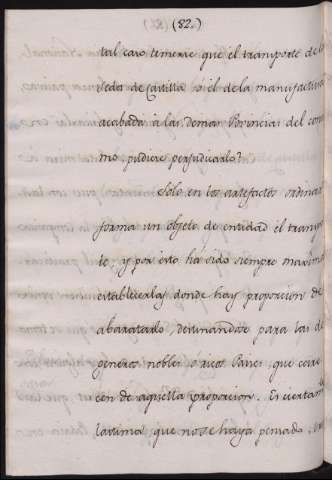 (82.)
tal caso temerse que el transporte de la
seda de Castilla ó el de la manufactura
acabada á las demas Provincias del con
mo, pudiese perjudicarlo?
Solo en los artefactos ordinar
forma un objeto de entidad el transpor
te, y por esto ha sido siempre maxima
establecerlas donde hay proporcion de
abaratarlo, destinandose para las de
generos nobles ó ricos Paises, que care
cen de aquella proporcion. Es ciertam
lastima que no se haya pensado